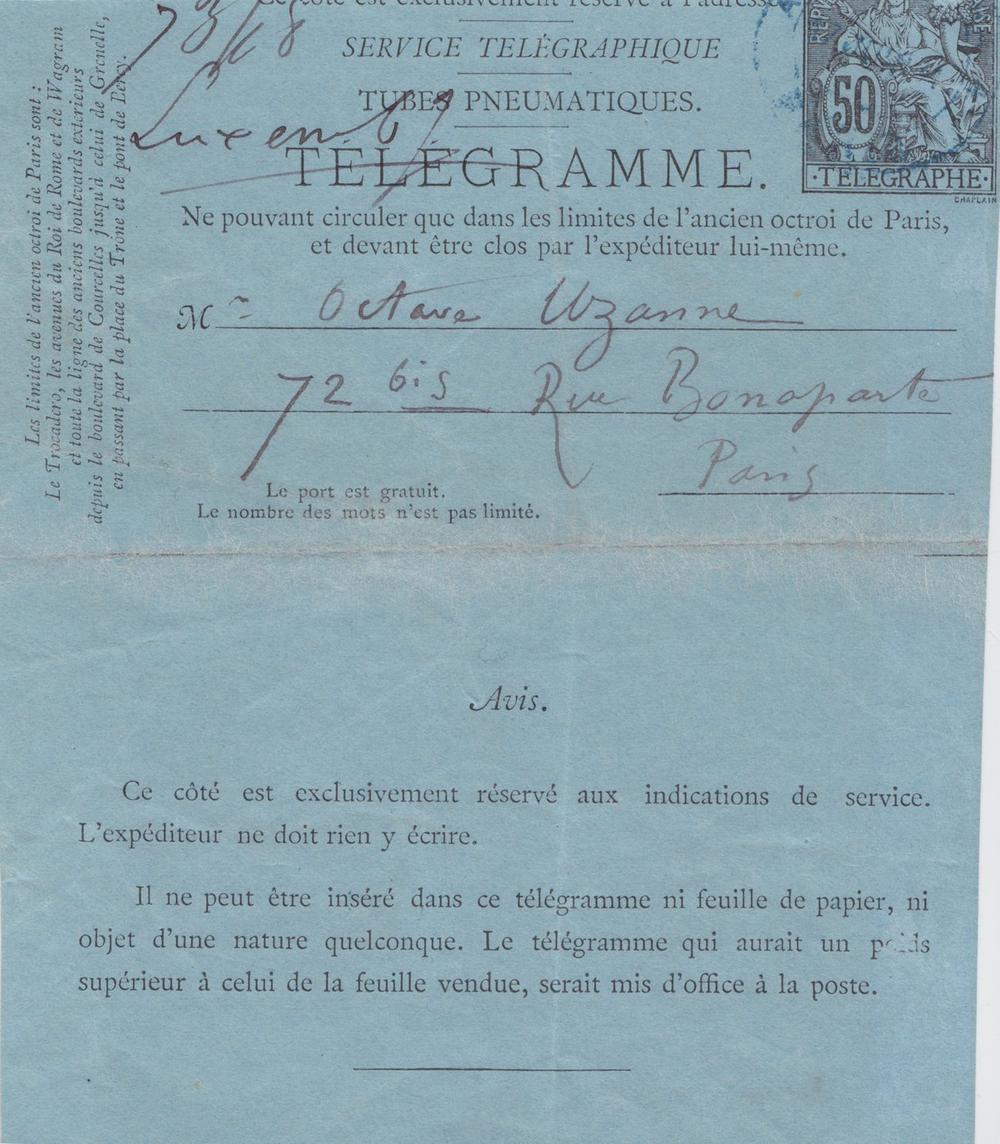 Ce côté est exclusivement réservé à l'adresse
SERVICE TÉLÉGRAPHIQUE
TUBES PNEUMATIQUES.
TÉLÉGRAMME.
Ne pouvant circuler que dans les limites de l'ancien octroi de Paris,
et devant être clos par l'expéditeur lui-même.
50
·TELEGRAPHE·
CHAPLAIN
Les limites de l'ancien octroi de Paris sont :
Le Trocadero, les avenues du Roi de Rome et de Wagram
et toute la ligne des anciens boulevards extérieurs
depuis le boulevard de Courcelles jusqu'à celui de Grenelle,
en passant par la place du Trone et le pont de Bercy.
Mr Octave Uzanne
72 bis Rue Bonaparte
Paris
Le port est gratuit.
Le nombre des mots n'est pas limité.
Avis.
Ce côté est exclusivement réservé aux indications de service.
L'expéditeur ne doit rien y écrire.
Il ne peut être inséré dans ce télégramme ni feuille de papier, ni
objet d'une nature quelconque. Le télégramme qui aurait un poids
supérieur à celui de la feuille vendue, serait mis d'office à la poste.